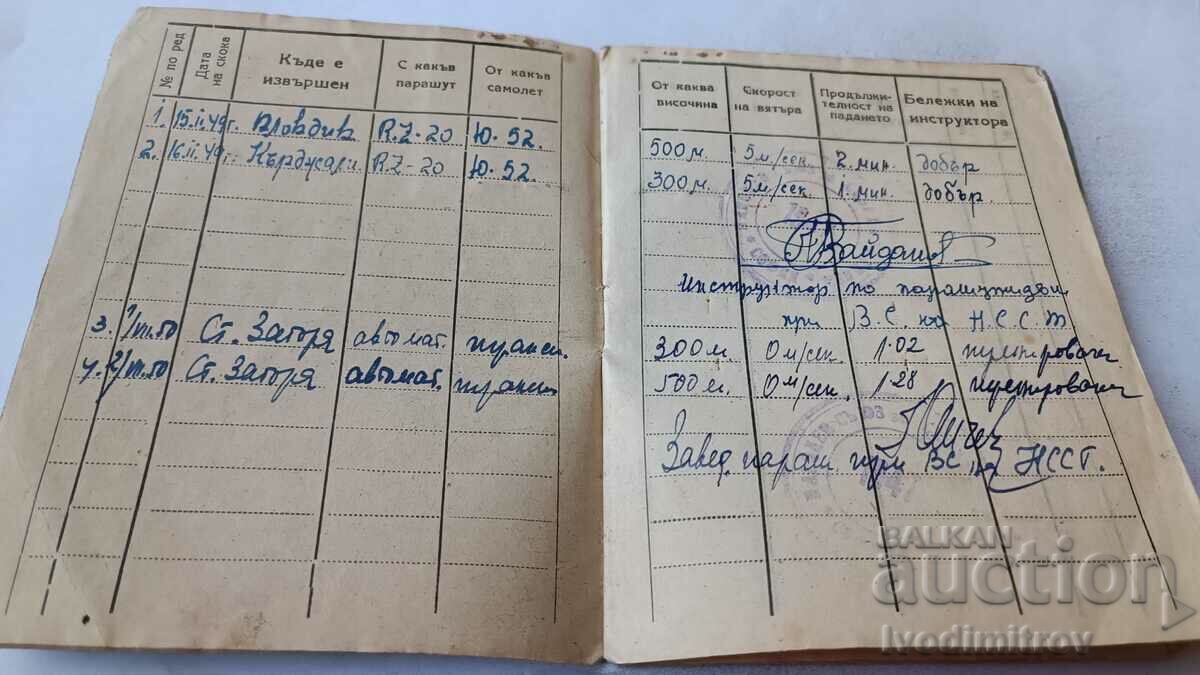 № по ред | Дата на скока | Къде е извършен | С какъв парашут | От какъв самолет
1. 15.II.49г. Пловдив R.Z-20 Ю.52.
2. 16.II.49г. R.Z-20 Ю.52
3. Ст. Загоря автомат.
4. Ст. Загоря автомат.
От каква височина | Скорост на вятъра | Продължителност на падането | Бележки на инструктора
500м. 5м/сек. 2. мин. добър
300м. 5м/сек. 1. мин. добър.
Инструктор по
при В.С. на Н.С.С.Т
300м. 0м/сек. 1.02
500м. 0м/сек. 1.28
Завед. параш при ВС на НССТ.
BALKAN
auction
Ivodimitrov